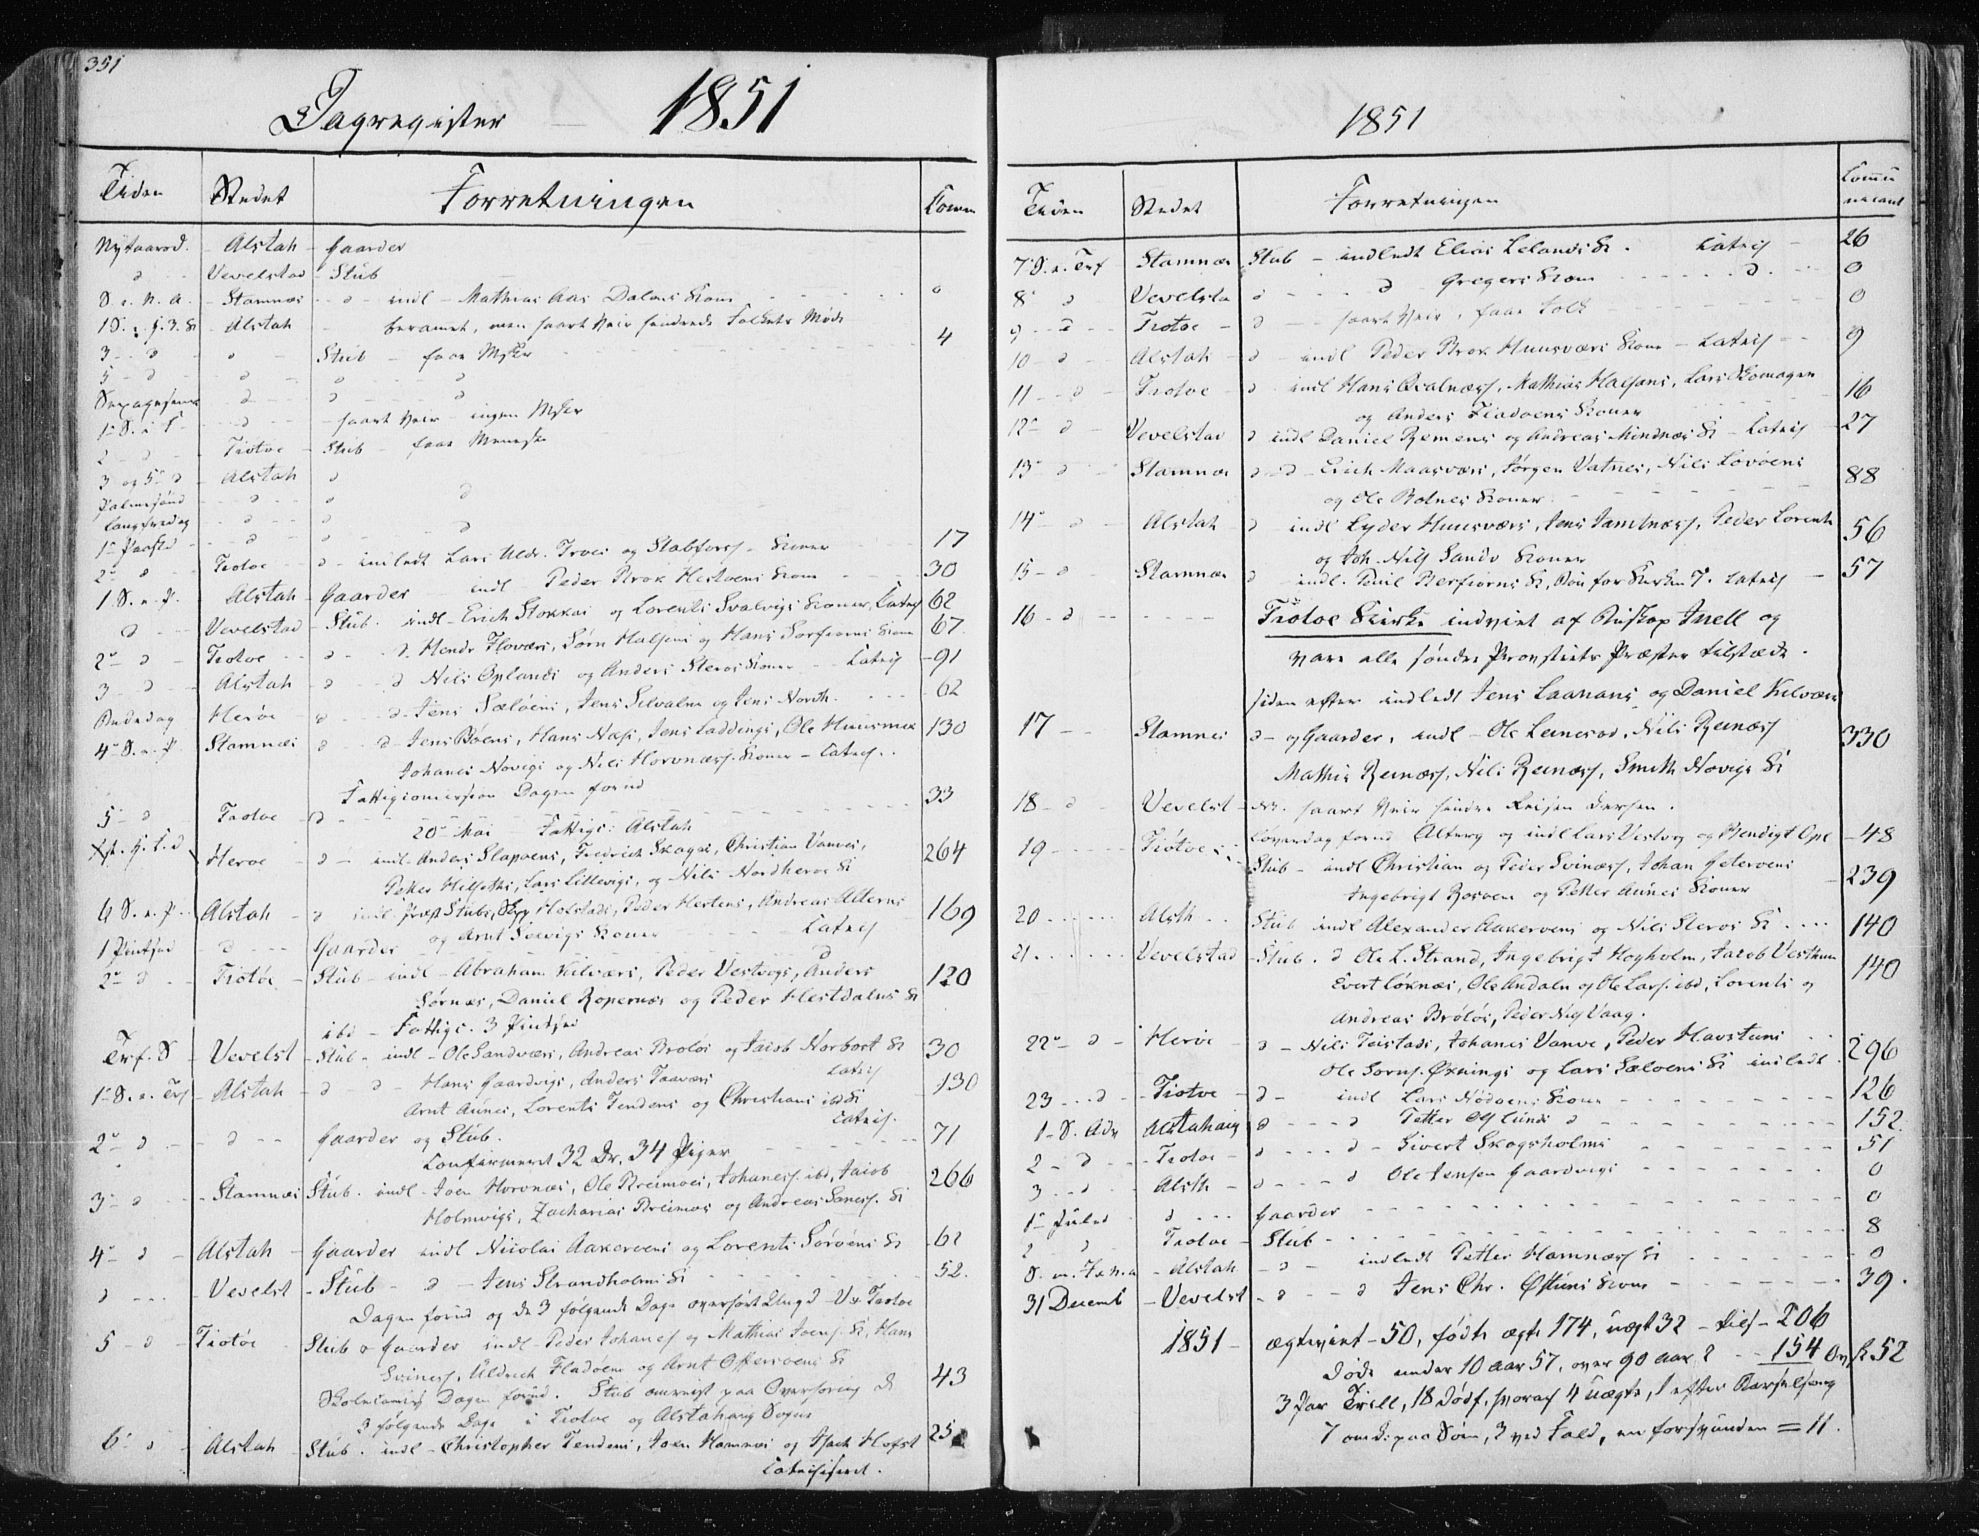 351
Dagregister — 1851
Tiden Stedet Forretningen Comm
Nytaarsd. - Alstah - Gaarder
d - Vevelstad - Stub
S. e. N. A. - Stamnæs - d - indl - Mathias Aas Dalens Kone 0
1 S. e. H. 3. K - Alstah - beramet, men haart Veir hindrede Folkets Møde
3 - d - d - Stub - faae Msker 4
5 - d - d - d - d
Sexagesima d - d - d
1 S. i F - d - haart Veir - ingen Msker
2 - d - Tiotøe - Stub - faae Mennesker
3 og 5 d - Alstah d
Palmesønd - d - d d
Langfredag - d - d
1 Paaskd - d - d - d 17
2 d Tiotøe - d - indledt Lars Aldr. Troes og Stabfors - Koner 30
1 S. e. P. Alstah - Gaarder indl - Peder Brok Hestøens Kone 62
d Vevelstad - Stub. indl - Erich Stokkas og Lorents Svalvigs Koner, Catech 67
2 - d - Tiotøe - d - d Hendr Floværs, Søren Halsens og Hans Sorfiorns Kone
3 - d - Alstah - d - d Nils Oplands og Anders Sleros Koner - Catech - 91
Bededag Herøe - d - d - Jens Sæløens, Jens Selvalen og Jens North. 62
4 S. e. P. Stamnæs d - d - Jens Bøens, Hans Næss, Jens Laddings, Ole Huusmoe 130
Johanes Novigs og Nils Hovnæss. Koner - Catech.
Fattigcommission Dagen forud
5 - d - Tiotøe - d 33
20 Mai - Fattigc: Alstah
Xst. H. F. d Herøe - d - indl - Anders Slapøens, Fredrich Skagas, Christian Vanves, 264
Petter Hilsettes, Lars Littevigs, og Nils Nordherøs K
6 S. e. P. - Alstah - d indl. Præst Stubs, Sypp Hofstads, Peder Hestens, Andreas Alterns 169
og Arnt Selvigs Koner Catech
1 Pintsed - d - Gaarder d
2 d Tiotøe - Stub - indl - Abraham Kilværs, Peder Vestvogs, Anders 120
Sørnæs, Daniel Ropernæs og Peder Hestdalens K
ibd - Fattigc. 3 Pintsed
Trf. S - Vevelst - Stub - indl - Ole Sandværs, Andreas Broløs og Jacob Norbost K 30
1 S. e. Trf - Alstah - d d - Hans Gaardvigs, Anders Taaværs Catech 130
Arnt Aunes, Lorents Tendens og Christians ibd K
2 d - d - Gaarder og Stub. Catech. 71
Confirmeret 32 Dr. 34 Piger
3 - d - Stamnæs Stub. indl - Joen Hovnæs, Ole Breimoes, Johaness. ibd, Jacob 266
Holmvigs, Zacharias Breimos og Andreas Saness. K
4 - d - Alstah - Gaarder indl Nicolai Aakervens og Lorents Sørøens K 62
d - Vevelst - Stub - d - Jens Strandholms K 52.
Dagen forud og de 3 følgende Dage overført Ungd - V. Tiotøe
5 - d - Tiotøe Stub o Gaarder indl - Peder Johanes og Mathias Joens. K, Hans
Svines, Uldrich Fladøens og Arnt Offersøens K 43
Skolecomiss Dagen forud. Stub omreist paa Overhøring de
3 følgende Dage i Tiotøe og Alstahaug Sogne
6 d Alstah - Stub. indl - Christopher Tendens, Joen Hamnes og Isach Hofst 25
Catechiseret.
1851
Tiden Stedet Forretningen Communicant
7 S. e. Trf - Stamnæs Stub - indledt Elias Lelands K. Catech - 26
8 d Vevelsta d - d Gregers Kone d. 0
9 - d - Tiotøe - d - haart Veir, faae Folk 0
10 - d - Alstah - d - indl Peder Brok Huusværs Kone - Catech - 9
11 - d - Tiotøe - d - indl Hans Qvalnæss, Mathias Halsens, Lars Skomager 16
og Anders Fladøens Koner
12 - d - Vevelstad d indl Daniel Remens og Andreas Mindnæs K - Catech 27
13 d - Stamnæs d - d - Erich Maasværs, Jørgen Vatnes, Nils Lovøens 88
og Ole Botnes Koner
14 - d - Alstah d indl Lyder Huusværs, Jens Jamtnæss, Peder Lorents 56
og Joh. Nils Sands Koner
15 - d - Stamnæs d - indl. Poul Berfiorns K, Bøn for Kirken 7. Catech - 57
16 - d - Tiotøe Kirke indviet af Biskop Juell og
vare alle søndre Provstiets Præster tilstæde.
siden efter indledt Jens Laanans og Daniel Kilværs
17 - Stamnes d - og Gaarder, indl - Ole Leinesod, Nils Reinæss 330
Mathis Reinæss, Nils Reinæss, Smith Novigs K
18 - d - Vevelst - NB. haart Veir hindre Reisen dersen.
19 - Tiotøe Løverdag forud Alterg og indl Lars Vestvog og Bendigt Opl - 48
Stub - indl Christian og Peder Svinæss, Johan Getervens
Ingebrigt Rosøen og Petter Aunes Koner - 239
20 - Alsth Stub indl Alexander Aakervens og Nils Sleros K 140
21 - Vevelstad - Stub. d Ole L. Strand, Ingebrigt Høgholm, Jacob Vesthun 140
Evert Løknæs, Ole Andalen og Ole Lars. ibd, Lorents og
Andreas Broløs, Peder Nils Vaag.
22 - d - Herøe d - Nils Teistads, Johanes Vanve, Peder Havsteens 296
Ole Sorns. Øxnings og Lars Sæløens K indledt
23 - d - Tiotøe - d - indl Lars Nødøens Kone 126
1 S. Adv Alstahaug d - d Petter Olslunds d 152.
2 - d - Tiotøe - d - d - Sivert Skogsholms 51
3 - d Alsth - d - d Ole Jensen Gaardvigs 0
1 Juled d - Gaarder 0
2 d Tiotøe - Stub 8
S. m. J. o. N. A. - Alstah - d - indledt Petter Hamnæss K 0
31 Decemb - Vevelst - d - d Jens Chr. Østuns Kone 39.
1851 - ægteviet - 50, fødte ægte 174, uægt 32 - tils - 206
Døde under 10 aar 57, over 90 aar 2 - 154 Ov sk 52
3 Par Trill, 18 dødf, hvoraf 4 uægte, 1 efter Barselseng
7 omk: paa Søen, 3 ved Fald, en forsvunden = 11.